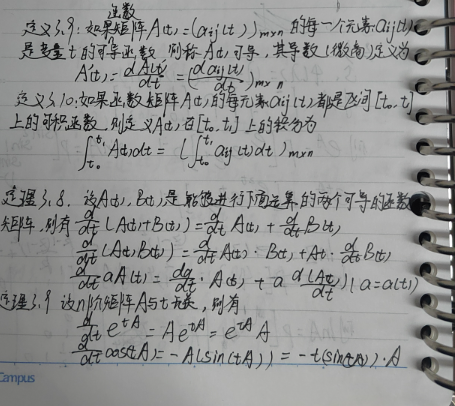 函数
定义3.9:如果矩阵A(t)=(aij(t))m×n的每一个元素aij(t)
是变量t的可导函数,则称A(t)可导,其导数(微商)定义为
A'(t)=dA(t)/dt=(d aij(t)/dt)m×n
定义3.10:如果函数矩阵A(t)的每元素aij(t)都是区间[t₀,t₁]
上的可积函数,则定义A(t)在[t₀,t₁]上的积分为
∫t₀^t₁ A(t)dt=(∫t₀^t₁ aij(t)dt)m×n
定理3.8. 设A(t),B(t)是能够进行下面运算的两个可导的函数
矩阵,则有 d/dt(A(t)+B(t))=d/dt A(t)+d/dt B(t),
d/dt(A(t)B(t))=d/dt A(t)·B(t)+A(t)·d/dt B(t)
d/dt aA(t)=da/dt·A(t)+a d(A(t))/dt (a=a(t))
定理3.9 设n阶矩阵A与t无关,则有
d/dt e^tA=Ae^tA=e^tA A
d/dt cos(tA)=-A(sin(tA))=-t(sin(tA))·A
Campus